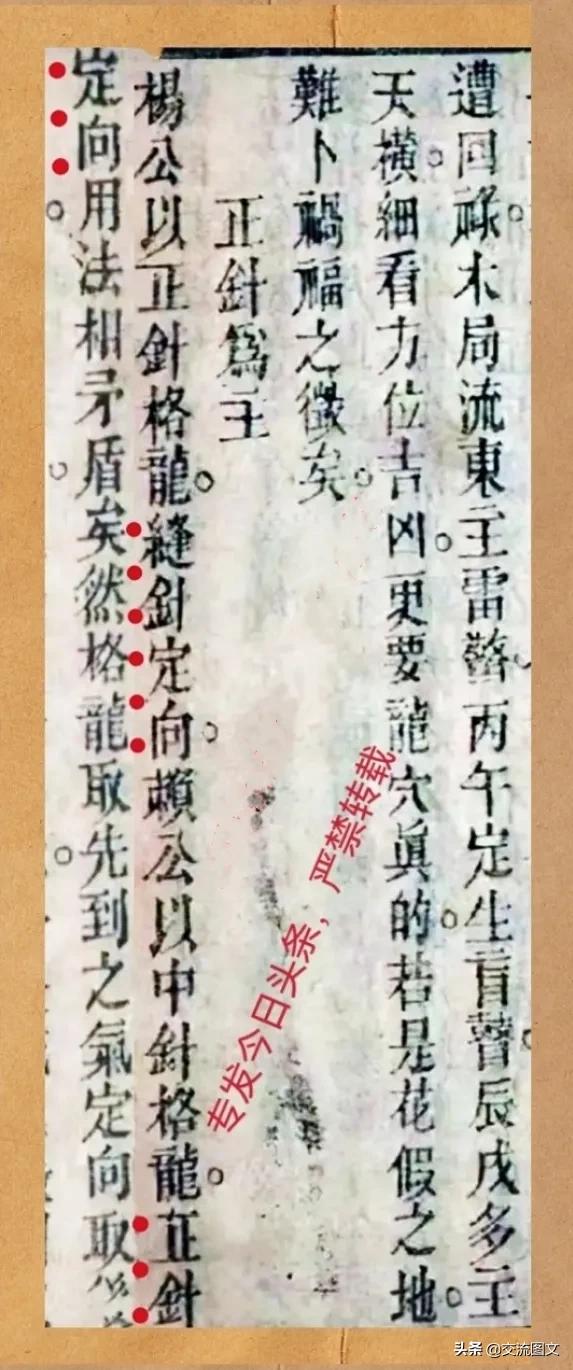 遭回祿木局流東主雷驚丙午定生盲瞽辰戌多主
天橫細看方位吉凶更要龍穴眞的若是花假之地
難卜禍福之徵矣
正針爲主
楊公以正針格龍縫針定向賴公以中針格龍正針
定向用法相矛盾矣然格龍取先到之氣定向取
专发今日头条，严禁转载
头条 @交流图文